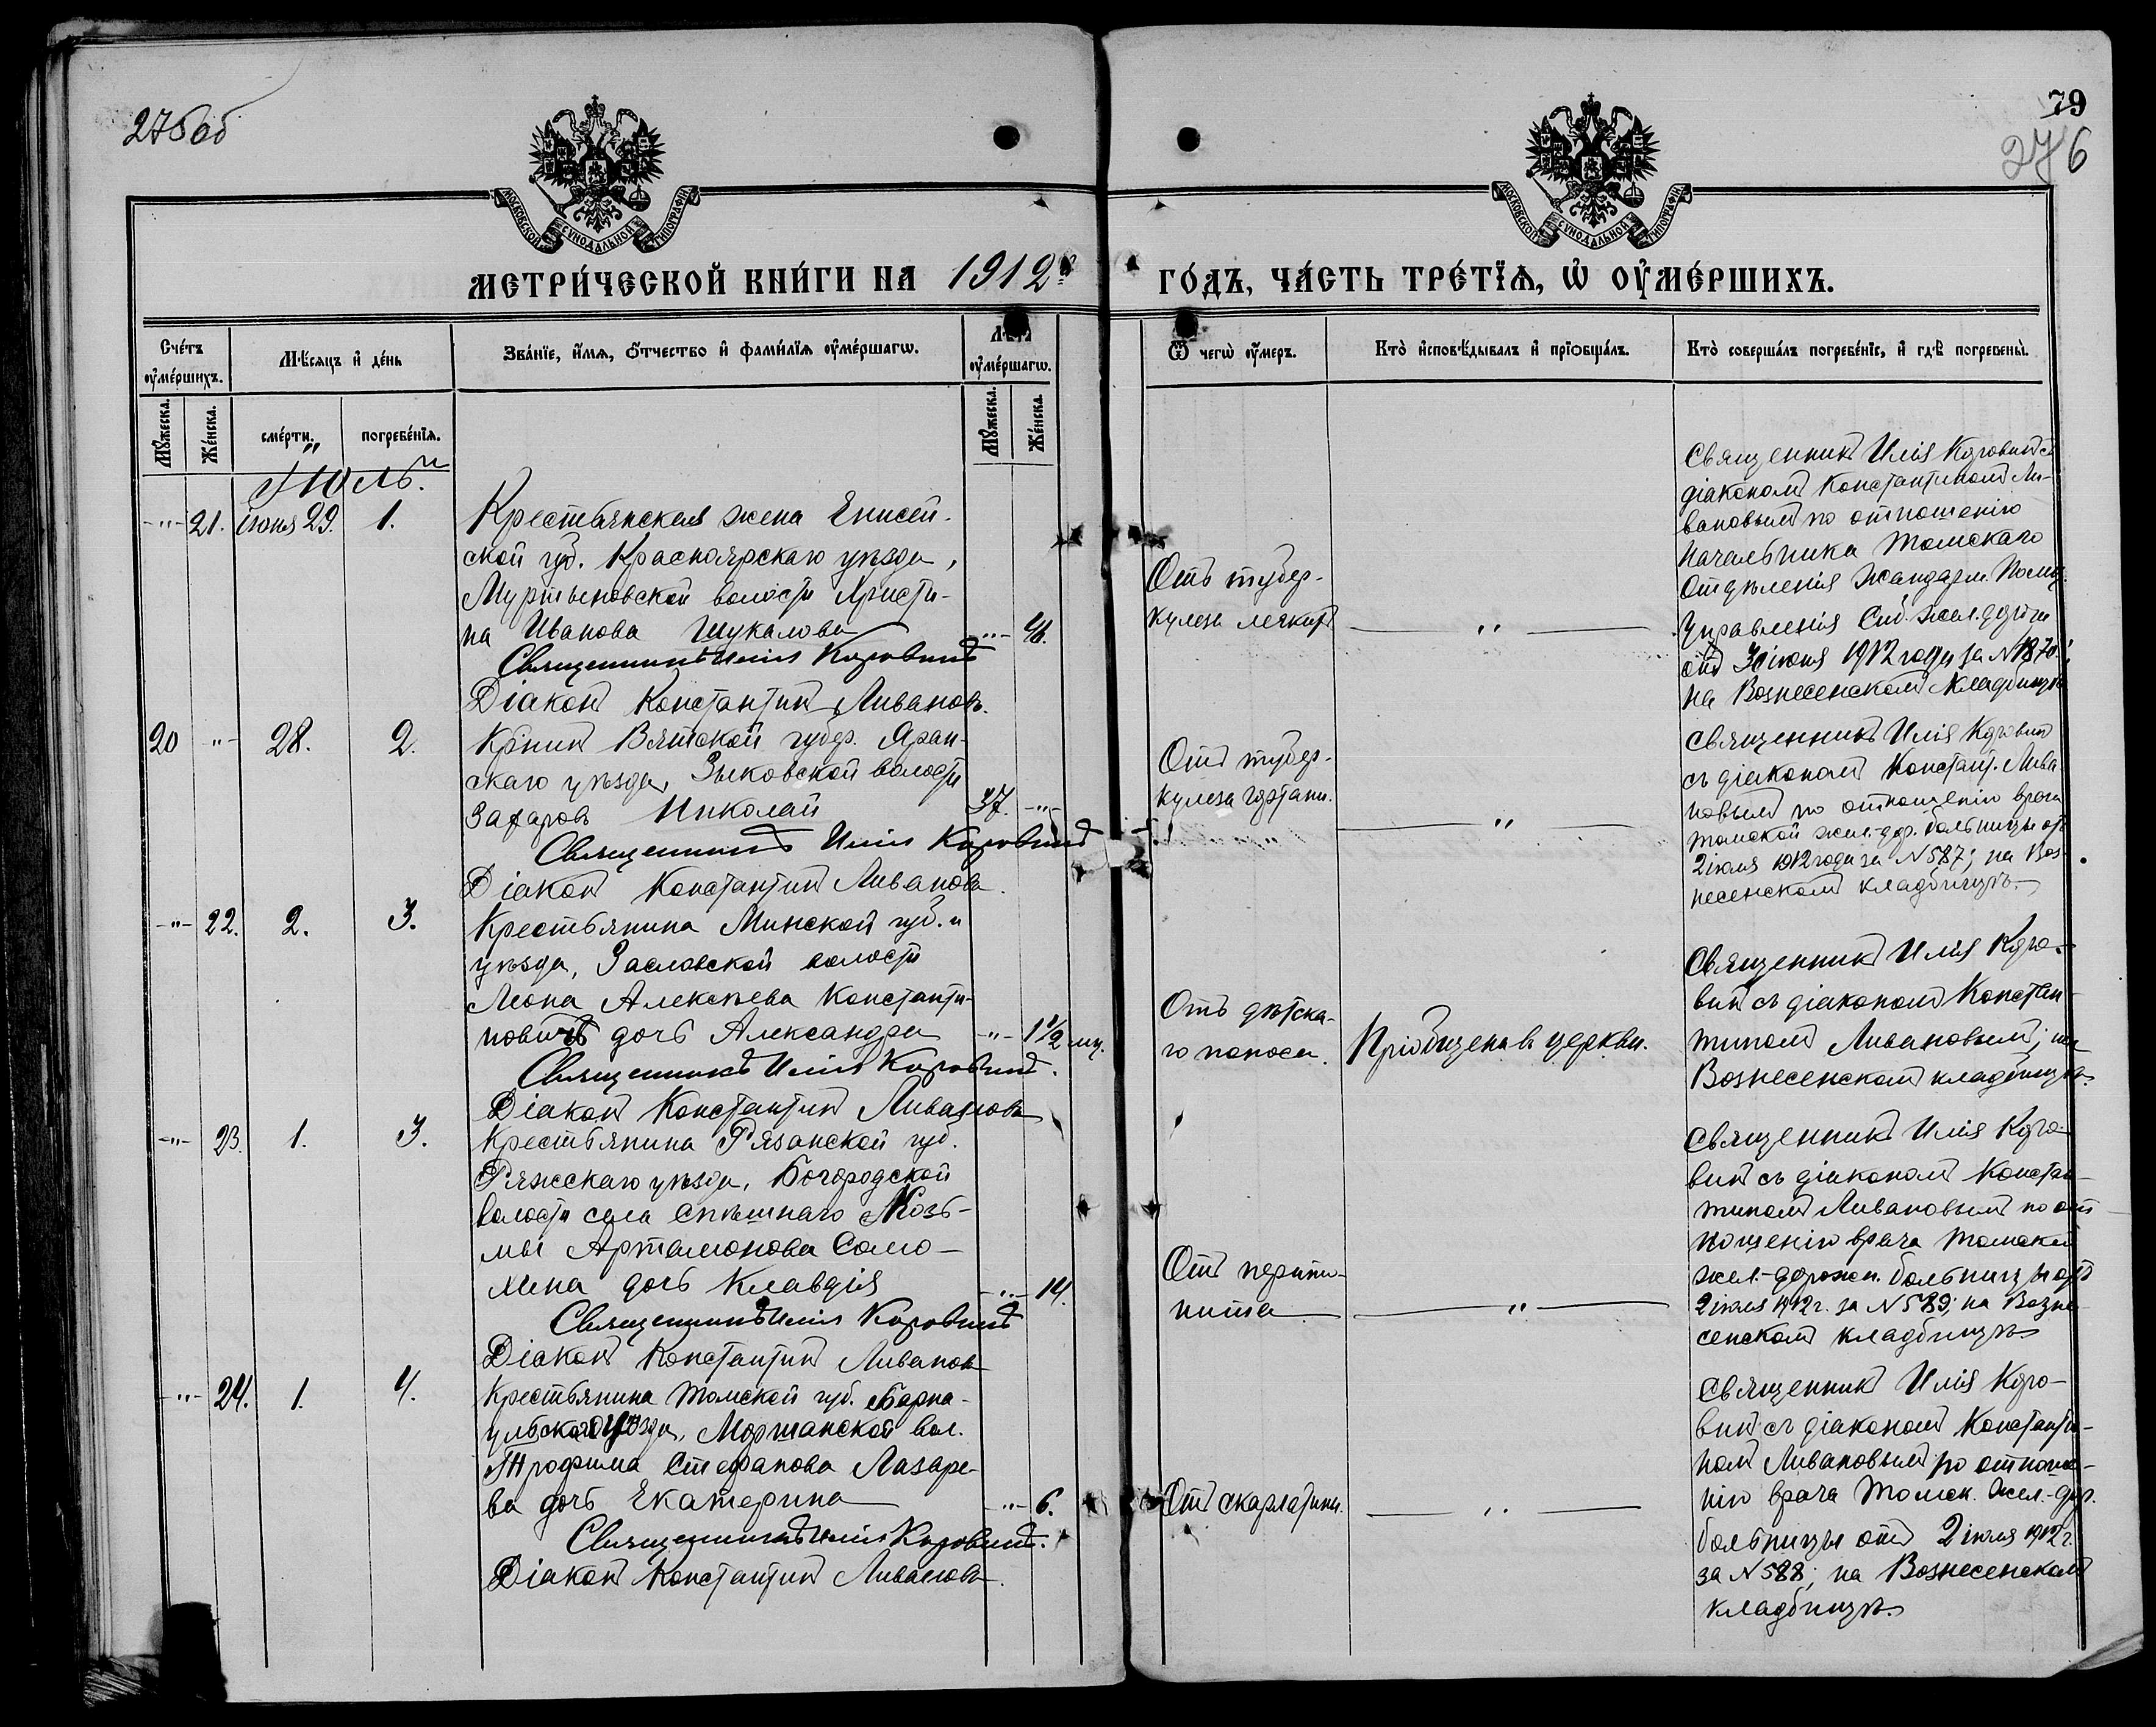 275об
79
276
МОСКОВСКОЙ СѴНОДАЛЬНОЙ ТИПОГРАФІИ
МОСКОВСКОЙ СѴНОДАЛЬНОЙ ТИПОГРАФІИ
МЕТРИ́ЧЕСКОЙ КНИ́ГИ НА 1912 ГО́ДЪ, ЧА́СТЬ ТРЕ́ТЇѦ, Ѡ҆ ОУ҆МЕ́РШИХЪ.
Счétъ оу҆мéршихъ.
Мѣ́сяцъ и҆ дéнь
Звáнїе, и҆́мѧ, ѻ҆́тчество и҆ фамѝлїѧ оу҆мéршагѡ.
Лѣ́та оу҆мéршагѡ.
Ѿ чегѡ̀ оу҆́меръ.
Ктò и҆сповѣ́дывалъ и҆ прїѡбщáлъ.
Ктò совершáлъ погребéнїе, и҆ гдѣ̀ погребены̀.
Мꙋ́жеска.
Жéнска.
смéрти.
погребéнїѧ.
Мꙋ́жеска.
Жéнска.
Іюль.
-"- 21. іюня 29. 1.
Крестьянская жена Енисей-
ской губ. Красноярскаго уѣзда,
Муртыновской волости Христи-
на Иванова Шукалова -"- 46.
Священникъ Илія Коровинъ
Діаконъ Константинъ Ливановъ.
Отъ тубер-
кулеза легкихъ
"
Священникъ Илія Коровинъ съ
діакономъ Константиномъ Ли-
вановымъ по отношенію
Начальника Томскаго
Отдѣленія Жандарм. Полиц.
Управленія Сиб. жел. дороги
отъ 30 іюня 1912 года за № 1870;
на Вознесенскомъ кладбищѣ
20 -"- 28. 2.
Кр-нинъ Вятской губер. Яран-
скаго уѣзда, Зыковской волости
Захаровъ Николай 37. -"-
Священникъ Илія Коровинъ
Діаконъ Константинъ Ливановъ.
Отъ тубер-
кулеза гортани.
"
Священникъ Илія Коровинъ
съ діакономъ Констант. Лива-
новымъ по отношенію врача
Томской жел.-дор. больницы отъ
2 іюля 1912 года за № 587; на Воз-
несенскомъ кладбищѣ.
-"- 22. 2. 3.
Крестьянина Минской губ. и
уѣзда, Заславской волости
Леона Алексѣева Константи-
новичъ дочь Александра -"- 1 1/2 мц.
Священникъ Илія Коровинъ.
Діаконъ Константинъ Ливановъ
Отъ дѣтска-
го поноса.
Пріобщена въ церкви.
Священникъ Илія Коро-
винъ съ діакономъ Констан-
тиномъ Ливановымъ; на
Вознесенскомъ кладбищѣ.
-"- 23. 1. 3.
Крестьянина Рязанской губ.
Ряжскаго уѣзда, Богородской
волости села Спѣшнаго Козь-
мы Артамонова Само-
хина дочь Клавдія -"- 14.
Священникъ Илія Коровинъ
Діаконъ Константинъ Ливановъ
Отъ перито-
нита
"
Священникъ Илія Коро-
винъ съ діакономъ Констан-
тиномъ Ливановымъ по от-
ношенію врача Томской
жел.-дорожн. больницы отъ
2 іюля 1912 г. за № 589; на Возне-
сенскомъ кладбищѣ
-"- 24. 1. 4.
Крестьянина Томской губ. Барна-
ульскаго уѣзда, Моршанской вол.
Трофима Стефанова Лазаре-
ва дочь Екатерина -"- 6.
Священникъ Илія Коровинъ.
Діаконъ Константинъ Ливановъ.
Отъ скарлатины.
"
Священникъ Илія Коро-
винъ съ діакономъ Константи-
номъ Ливановымъ по отноше-
нію врача Томск. жел.-дор.
больницы отъ 2 іюля 1912 г.
за № 588; на Вознесенскомъ
кладбищѣ.